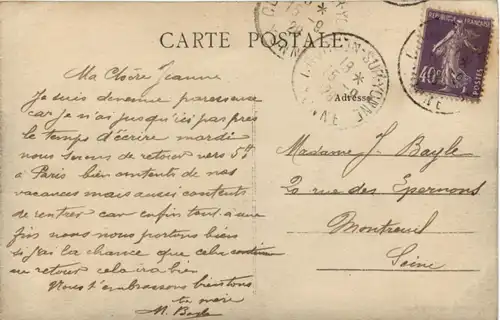 CARTE POSTALE
Ma Chère Jeanne
Je suis devenue paresseuse
car je n'ai jusqu'ici pas pris
le temps d'écrire mardi
nous serons de retour vers 5h
à Paris bien contents de nos
vacances mais aussi contents
de rentrer car enfin tout à une
fin nous nous portons bien
si j'ai la chance que cela continue
au retour cela ira bien
Nous t'embrassons bien tous
ta mère
M. Bayle
Adresse
Madame J. Bayle
2 rue des Epernons
Montreuil
Seine
REPUBLIQUE FRANÇAISE
40c
POSTES